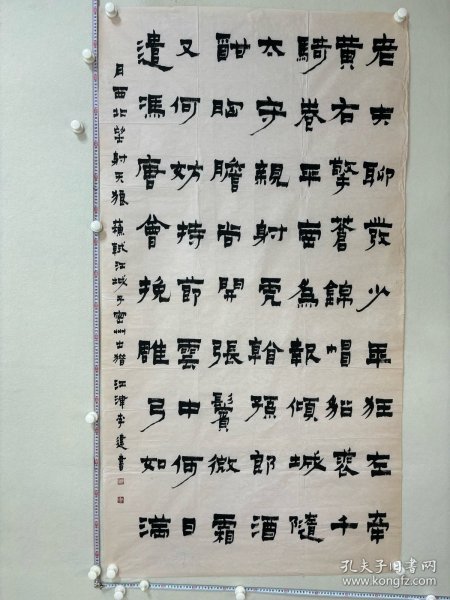 老夫聊發少年狂左牽
黃右擎蒼錦帽貂裘千
騎卷平岡為報傾城隨
太守親射虎看孫郎酒
酣胸膽尚開張鬢微霜
又何妨持節雲中何日
遣馮唐會挽雕弓如滿
月西北望射天狼 蘇軾江城子密州出獵 江津李建書
孔夫子旧书网
www.kongfz.com